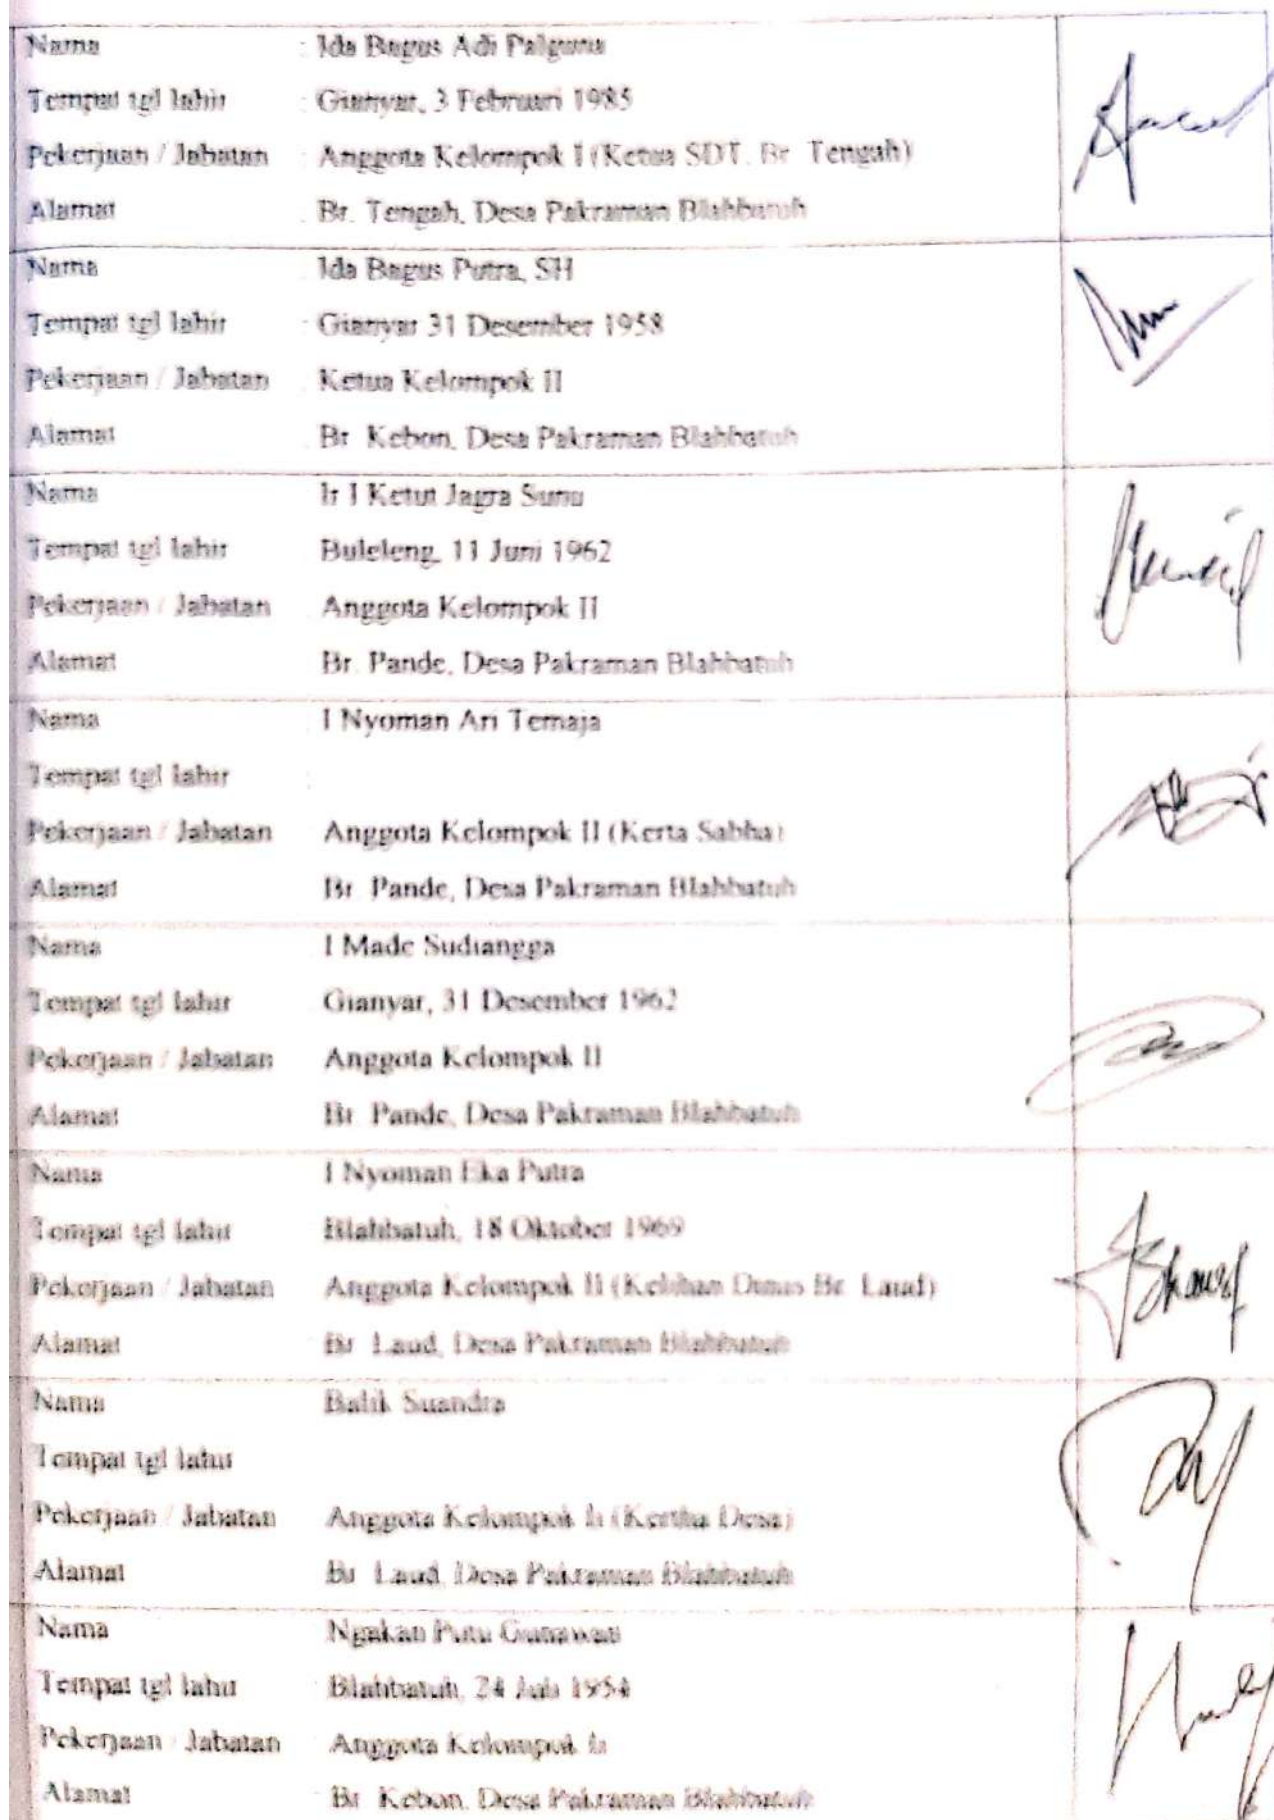 Nama : Ida Bagus Adi Palguna
Tempat tgl lahir : Gianyar, 3 Februari 1985
Pekerjaan / Jabatan : Anggota Kelompok I (Ketua SDT. Br. Tengah)
Alamat : Br. Tengah, Desa Pakraman Blahbatuh
Nama Ida Bagus Putra, SH
Tempat tgl lahir : Gianyar 31 Desember 1958
Pekerjaan / Jabatan : Ketua Kelompok II
Alamat : Br. Kebon, Desa Pakraman Blahbatuh
Nama Ir I Ketut Jagra Sunu
Tempat tgl lahir Buleleng, 11 Juni 1962
Pekerjaan / Jabatan : Anggota Kelompok II
Alamat Br. Pande, Desa Pakraman Blahbatuh
Nama : I Nyoman Ari Temaja
Tempat tgl lahir :
Pekerjaan / Jabatan Anggota Kelompok II (Kerta Sabha)
Alamat Br. Pande, Desa Pakraman Blahbatuh
Nama I Made Sudiangga
Tempat tgl lahir Gianyar, 31 Desember 1962
Pekerjaan / Jabatan Anggota Kelompok II
Alamat Br. Pande, Desa Pakraman Blahbatuh
Nama I Nyoman Eka Putra
Tempat tgl lahir Blahbatuh, 18 Oktober 1969
Pekerjaan / Jabatan Anggota Kelompok II (Kelihan Dinas Br. Laud)
Alamat Br. Laud, Desa Pakraman Blahbatuh
Nama Balik Suandra
Tempat tgl lahir
Pekerjaan / Jabatan Anggota Kelompok Ii (Kertha Desa)
Alamat Br. Laud, Desa Pakraman Blahbatuh
Nama Ngakan Putu Gunawan
Tempat tgl lahir : Blahbatuh, 24 Juli 1954
Pekerjaan / Jabatan Anggota Kelompok Ii
Alamat : Br. Kebon, Desa Pakraman Blahbatuh